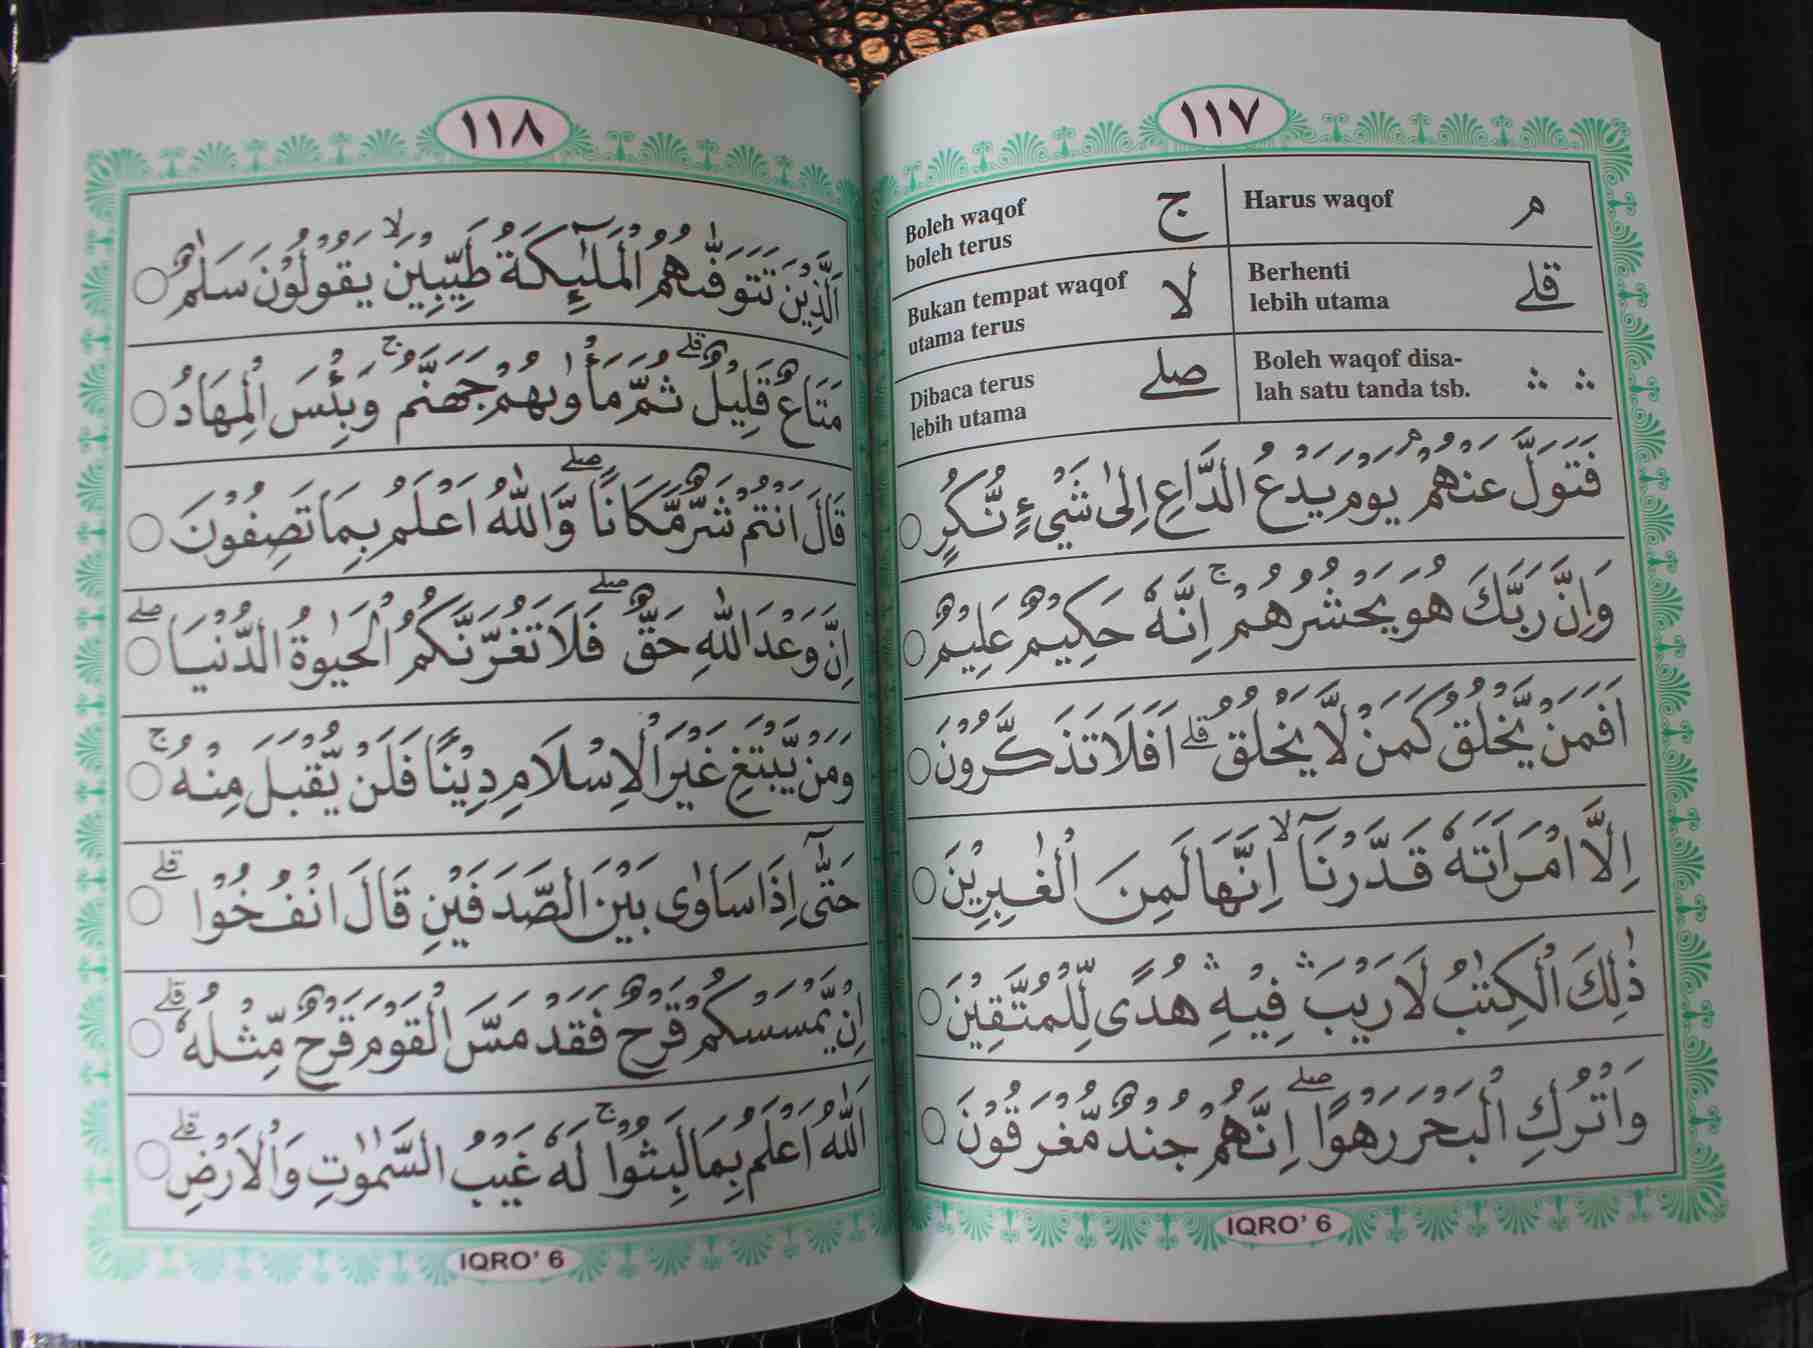 ١١٧
Harus waqof م
Boleh waqof ج
boleh terus
Berhenti قلے
lebih utama
Bukan tempat waqof لا
utama terus
Boleh waqof disa- ۛ ۛ
lah satu tanda tsb.
Dibaca terus صلے
lebih utama
فَتَوَلَّ عَنْهُمْ ۘ يَوْمَ يَدْعُ الدَّاعِ اِلٰى شَيْءٍ نُّكُرٍ ○
وَاِنَّ رَبَّكَ هُوَ يَحْشُرُهُمْ ۚ اِنَّهٗ حَكِيْمٌ عَلِيْمٌ ○
اَفَمَنْ يَّخْلُقُ كَمَنْ لَّا يَخْلُقُ ۗ اَفَلَا تَذَكَّرُوْنَ ○
اِلَّا امْرَاَتَهٗ قَدَّرْنَآ ۙ اِنَّهَا لَمِنَ الْغٰبِرِيْنَ ○
ذٰلِكَ الْكِتٰبُ لَا رَيْبَ ۛ فِيْهِ ۛ هُدًى لِّلْمُتَّقِيْنَ ○
وَاتْرُكِ الْبَحْرَ رَهْوًا ۖ اِنَّهُمْ جُنْدٌ مُّغْرَقُوْنَ ○
IQRO' 6
١١٨
الَّذِيْنَ تَتَوَفّٰىهُمُ الْمَلٰٓىِٕكَةُ طَيِّبِيْنَ ۙ يَقُوْلُوْنَ سَلٰمٌ ○
مَتَاعٌ قَلِيْلٌ ۗ ثُمَّ مَأْوٰىهُمْ جَهَنَّمُ ۚ وَبِئْسَ الْمِهَادُ ○
قَالَ اَنْتُمْ شَرٌّ مَّكَانًا ۖ وَّاللّٰهُ اَعْلَمُ بِمَا تَصِفُوْنَ ○
اِنَّ وَعْدَ اللّٰهِ حَقٌّ ۖ فَلَا تَغُرَّنَّكُمُ الْحَيٰوةُ الدُّنْيَا ۖ ○
وَمَنْ يَّبْتَغِ غَيْرَ الْاِسْلَامِ دِيْنًا فَلَنْ يُّقْبَلَ مِنْهُ ۚ ○
حَتّٰٓى اِذَا سَاوٰى بَيْنَ الصَّدَفَيْنِ قَالَ انْفُخُوْا ۗ ○
اِنْ يَّمْسَسْكُمْ قَرْحٌ فَقَدْ مَسَّ الْقَوْمَ قَرْحٌ مِّثْلُهٗ ۗ ○
اَللّٰهُ اَعْلَمُ بِمَا لَبِثُوْا ۚ لَهٗ غَيْبُ السَّمٰوٰتِ وَالْاَرْضِ ۗ ○
IQRO' 6